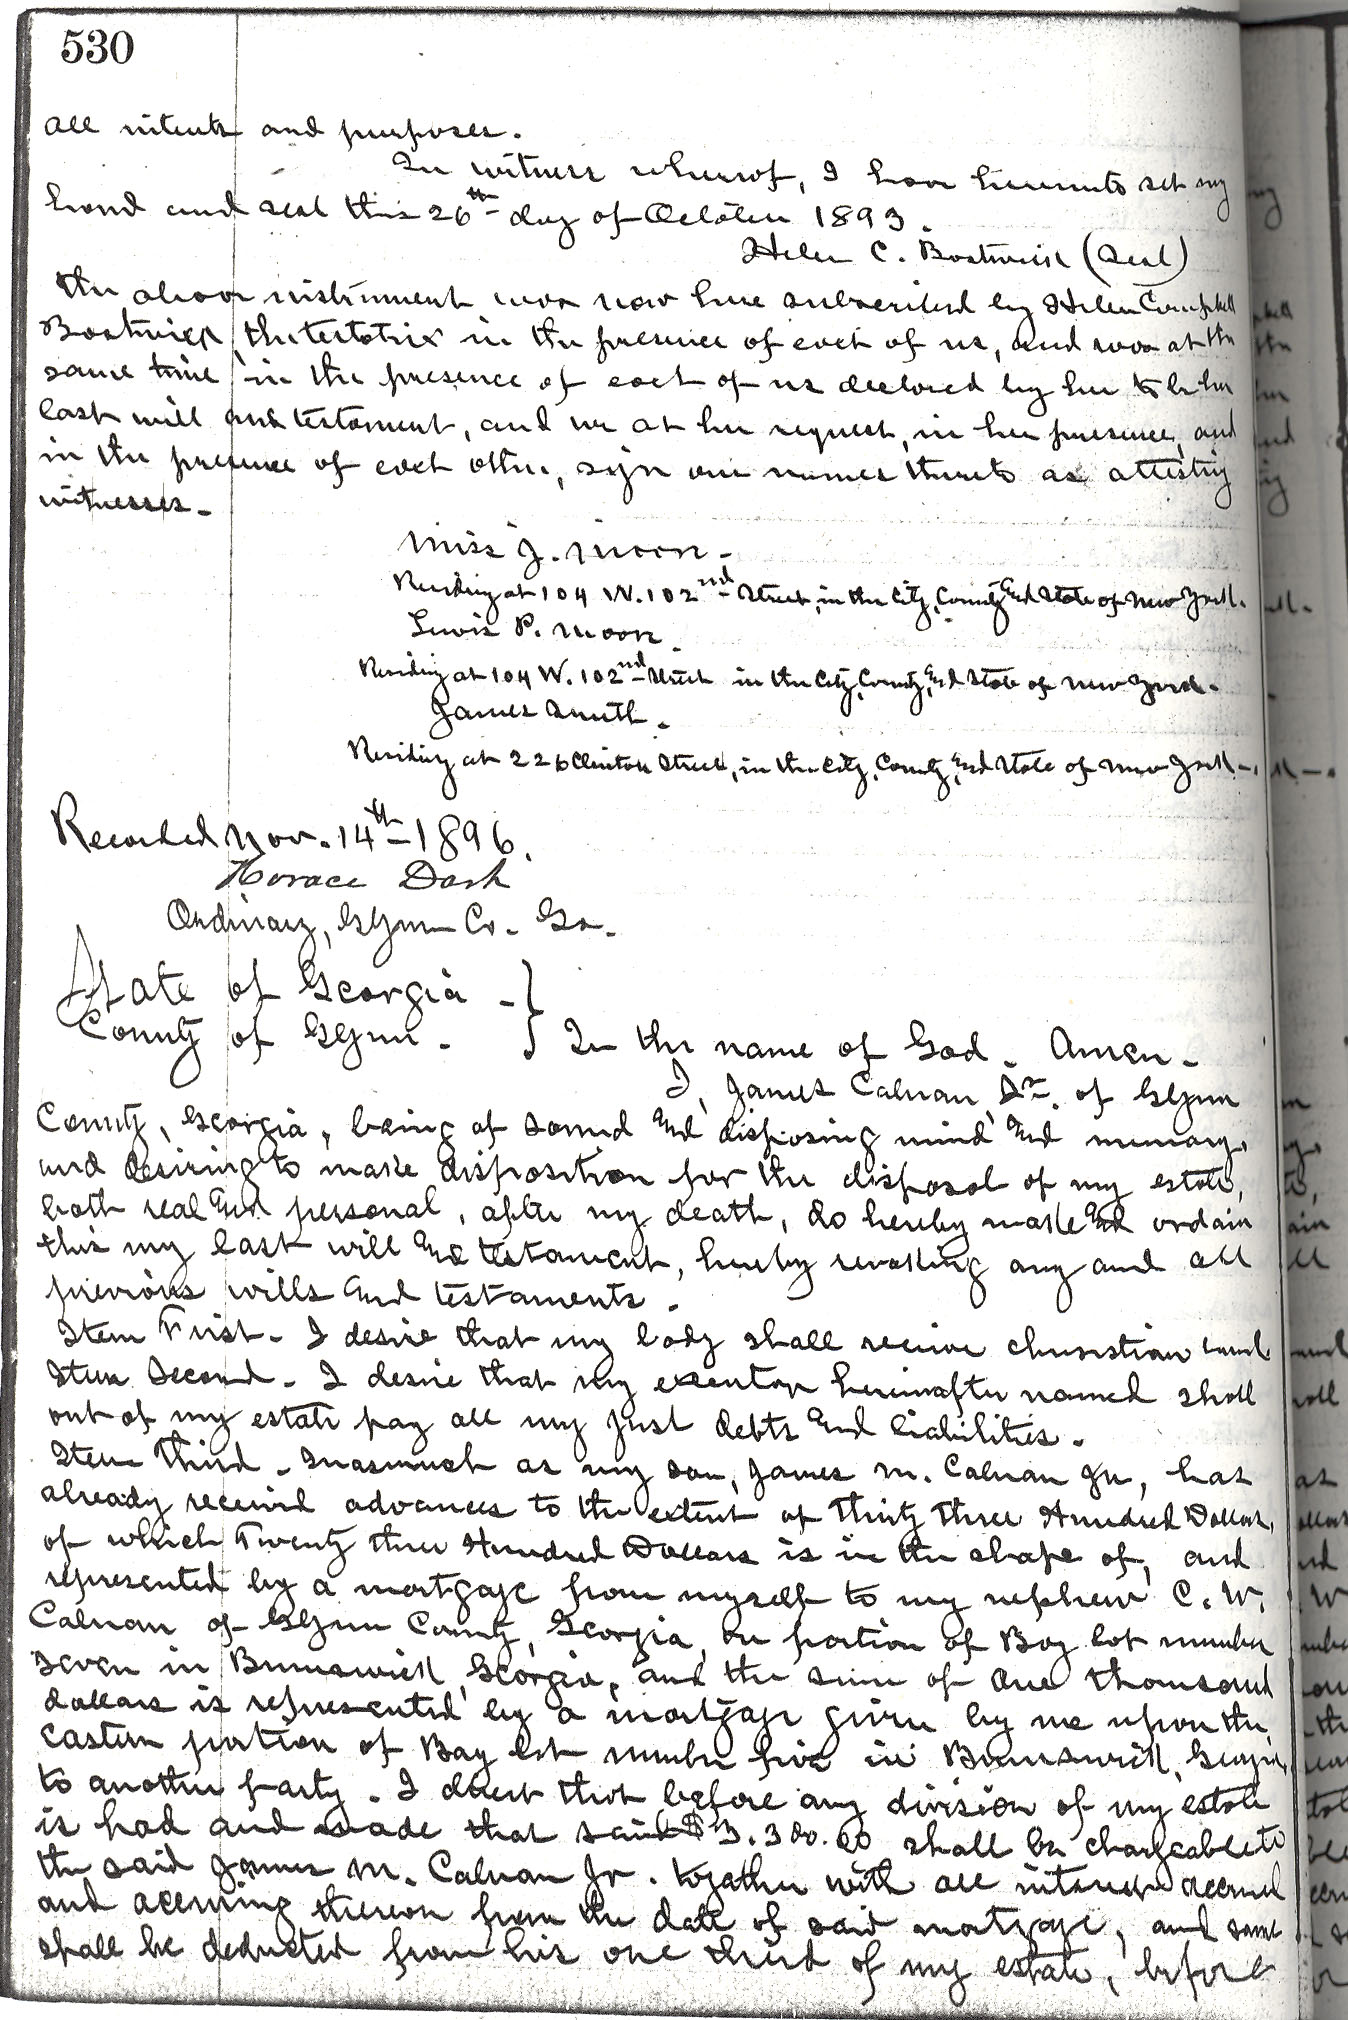 530
all intents and purposes.
In witness whereof, I have hereunto set my
hand and seal this 26th day of October 1893.
Helen C. Bostwick (Seal)
The above instrument was now here subscribed by Helen Campbell
Bostwick, the testatrix in the presence of each of us, and was at the
same time in the presence of each of us declared by her to be her
last will and testament, and we at her request, in her presence, and
in the presence of each other, sign our names thereto as attesting
witnesses.
Miss J. Moon.
Residing at 104 W. 102nd Street, in the City, County and State of New York.
Lewis P. Moon.
Residing at 104 W. 102nd Street in the City, County, and State of New York.
James Smith.
Residing at 226 Clinton Street, in the City, County, and State of New York.
Recorded Nov. 14th 1896.
Horace Dart
Ordinary, Glynn Co. Ga.
State of Georgia
County of Glynn. } In the name of God. Amen.
I, James Calnan, Sr. of Glynn
County, Georgia, being of sound and disposing mind and memory,
and desiring to make disposition for the disposal of my estate,
both real and personal, after my death, do hereby make and ordain
this my last will and testament, hereby revoking any and all
previous wills and testaments.
Item First. I desire that my body shall receive christian burial
Item Second. I desire that my executor hereinafter named shall
out of my estate pay all my just debts and liabilities.
Item Third. Inasmuch as my son, James M. Calnan Jr, has
already received advances to the extent of Thirty three Hundred Dollars,
of which Twenty three Hundred Dollars is in the shape of, and
represented by a mortgage from myself to my nephew C. W.
Calnan of Glynn County, Georgia, on portion of Bay lot number
seven in Brunswick, Georgia, and the sum of One thousand
dollars is represented by a mortgage given by me upon the
eastern portion of Bay lot number five in Brunswick, Georgia,
to another party. I direct that before any division of my estate
is had and made that said $3.300.00 shall be chargeable to
the said James M. Calnan Jr. together with all interest accrued
and accruing thereon from the date of said mortgage, and same
shall be deducted from his one third of my estate, before